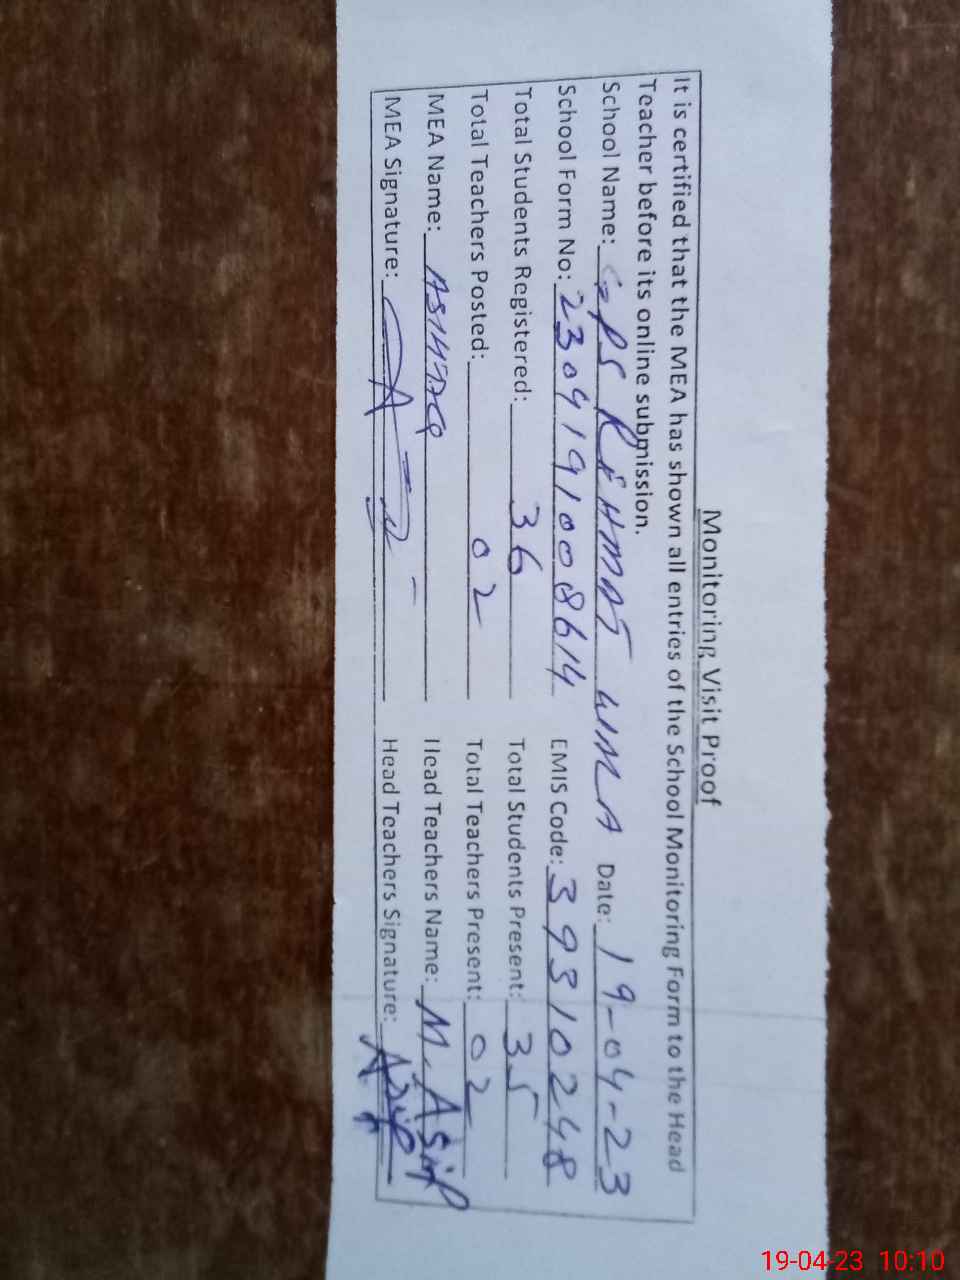 Monitoring Visit Proof
It is certified that the MEA has shown all entries of the School Monitoring Form to the Head
Teacher before its online submission.
School Name: GPS REHMAT WMA Date: 19-04-23
School Form No: 2309191008614 EMIS Code: 39310248
Total Students Registered: 36 Total Students Present: 35
Total Teachers Posted: 02 Total Teachers Present: 02
MEA Name: Head Teachers Name: M. Asif
MEA Signature: Head Teachers Signature: Asif
19-04-23 10:10